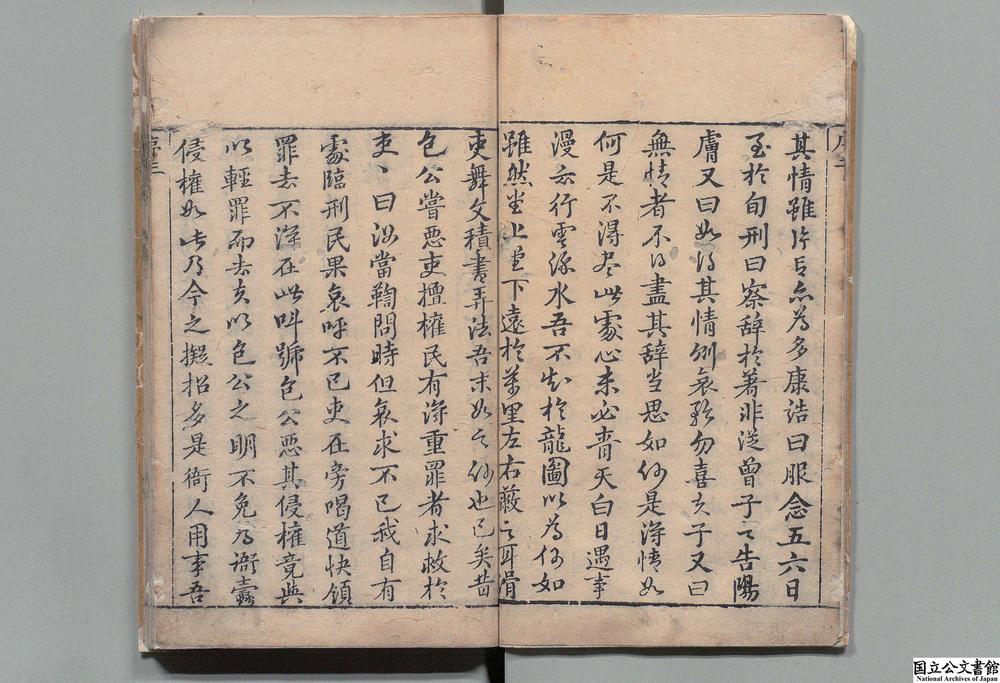 其情雖片言亦為多康誥曰服念五六日
至於旬刑曰察辭於著非從曾子之告陽
膚又曰如得其情則哀矜勿喜夫子又曰
無情者不得盡其辭当思如何是淂情如
何是不得尽此處心未必青天白日遇事
漫云行雲流水吾不知於龍圖以為何如
雖然堂上堂下遠於萬里左右蔽之耳骨
吏舞文積書弄法吾末如之何也已矣昔
包公嘗悪吏擅權民有淂重罪者求救於
吏〻曰汝當鞫問時但哀求不已我自有
處臨刑民果哀呼不已吏在旁喝道快領
罪去不淂在此叫號包公悪其侵權竟與
以輕罪而去夫以包公之明不免為衙蠹
侵權如此乃今之擬招多是衙人用事吾
序二
序三
国立公文書館
National Archives of Japan